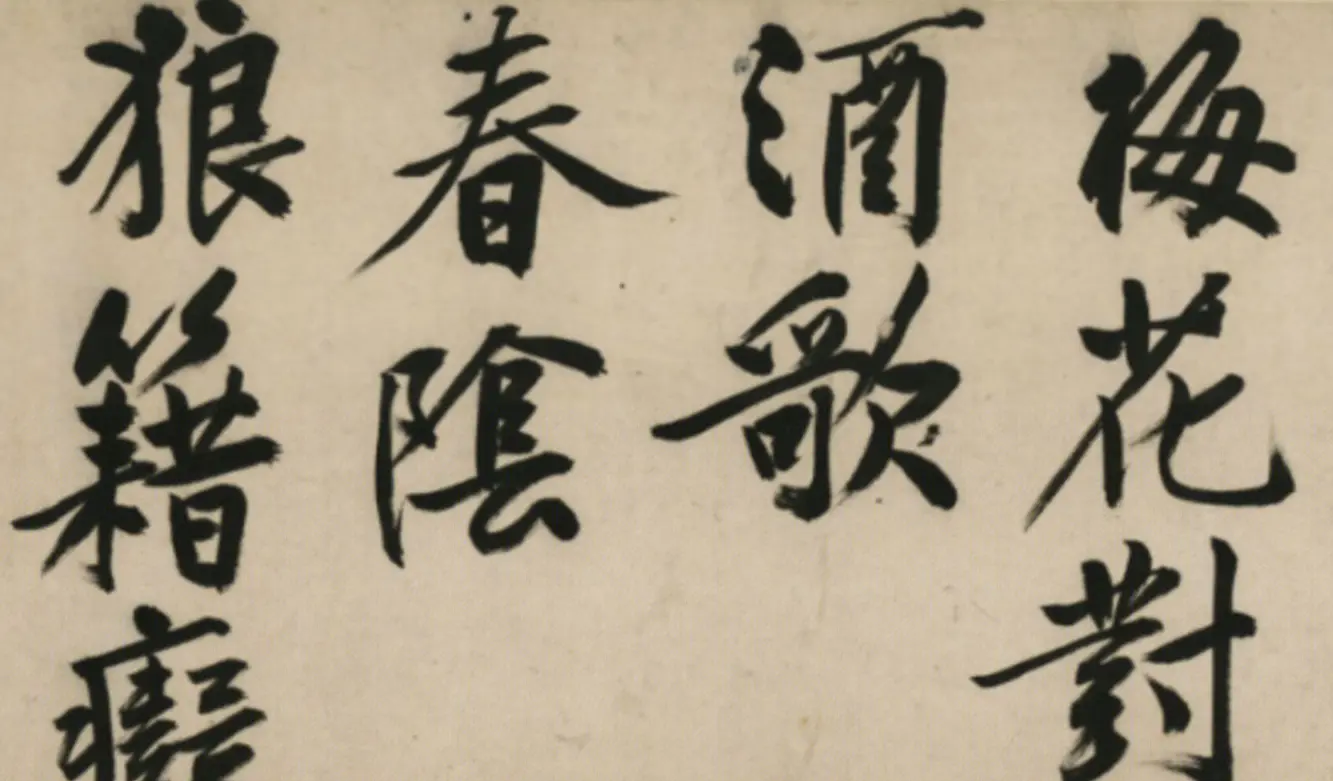 梅花對
酒歌
春陰
狼籍